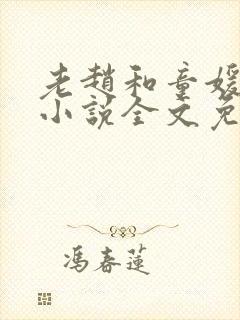 老趙和童媛
小說全文免
馮春蓮